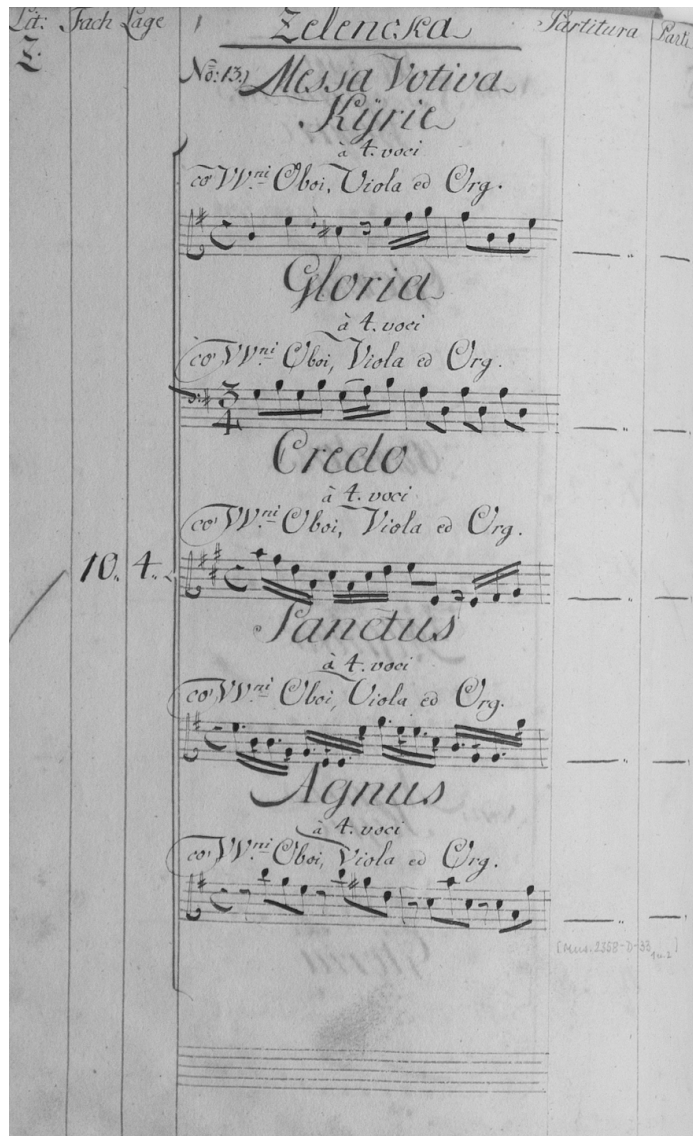 Lit: Fach Lage Zelencka Partitura Parti
Z.
No: 13.) Messa Votiva
Kÿrie
à 4. voci
co VV.ni Oboi, Viola ed Org.
Gloria
à 4. voci
co VV.ni Oboi, Viola ed Org.
3
4
Credo
à 4. voci
co VV.ni Oboi, Viola ed Org.
10. 4.
Sanctus
à 4. voci
co VV.ni Oboi, Viola ed Org.
Agnus
à 4. voci
co VV.ni Oboi, Viola ed Org.
[Mus. 2358-D-33
1 u. 2 ]